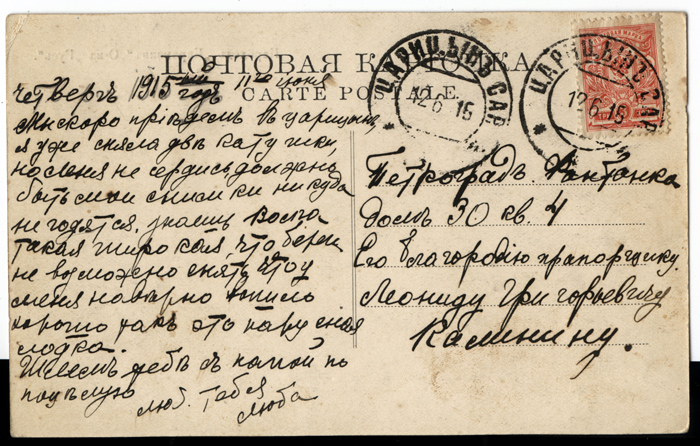 ПОЧТОВАЯ КАРТОЧКА
CARTE POSTALE.
ЦАРИЦЫНЪ САР.
12 6 15
ЦАРИЦЫНЪ САР.
12 6 15
четвергъ 1915 годъ 11 июня
Мы скоро пріѣдемъ в царицынъ,
я уже сняла двѣ катушки,
но меня не сердись должно
быть мои снимки никуда
не годятся, знаешь Волга
такая широкая, что берег
не возможно снять, что у
меня наверно вышло
хорошо такъ это парусная
лодка.
Шлемъ тебѣ съ мамой по
поцѣлую
люб. тебя
Люба
Петроградъ. Фонтанка
домъ 30 кв. 4
Его благородію прапорщику.
Леониду Григорьевичу
Калинину.